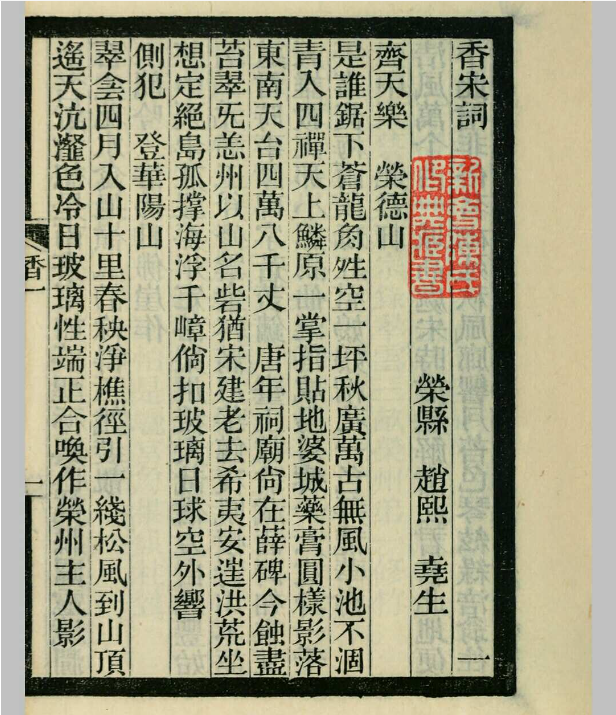 香宋詞 一
新會陳氏
榮縣 趙熙 堯生
齊天樂 榮德山
是誰鋸下蒼龍角空一坪秋廣萬古無風小池不涸
青入四禪天上鱗原一掌指貼地婆城藥膏圓樣影落
東南天台四萬八千丈 唐年祠廟尙在薛碑今蝕盡
苔翠旡恙州以山名砦猶宋建老去希夷安洪荒坐
想定絕島孤撐海浮千嶂倘扣玻璃日球空外響
側犯 登華陽山
翠侌四月入山十里春秧淨樵徑引一綫松風到山頂
遙天沆瀣色冷日玻璃性端正合喚作榮州主人影
香一
一